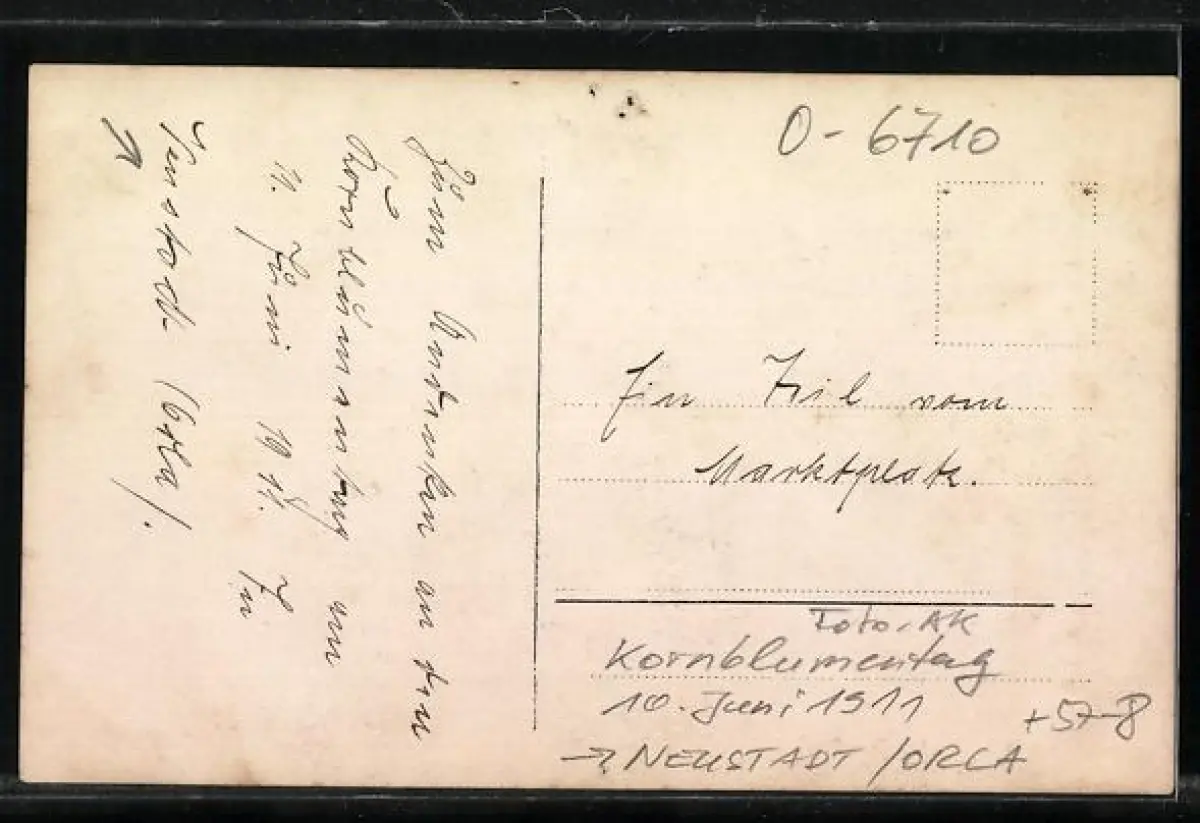 Zum Andenken an den
Kornblumentag am
11. Juni 1911. In
Neustadt (Orla).
O-6710
Ein Teil vom
Marktplatz.
Foto-AK
Kornblumentag
10. Juni 1911
+57-8
→ NEUSTADT /ORLA